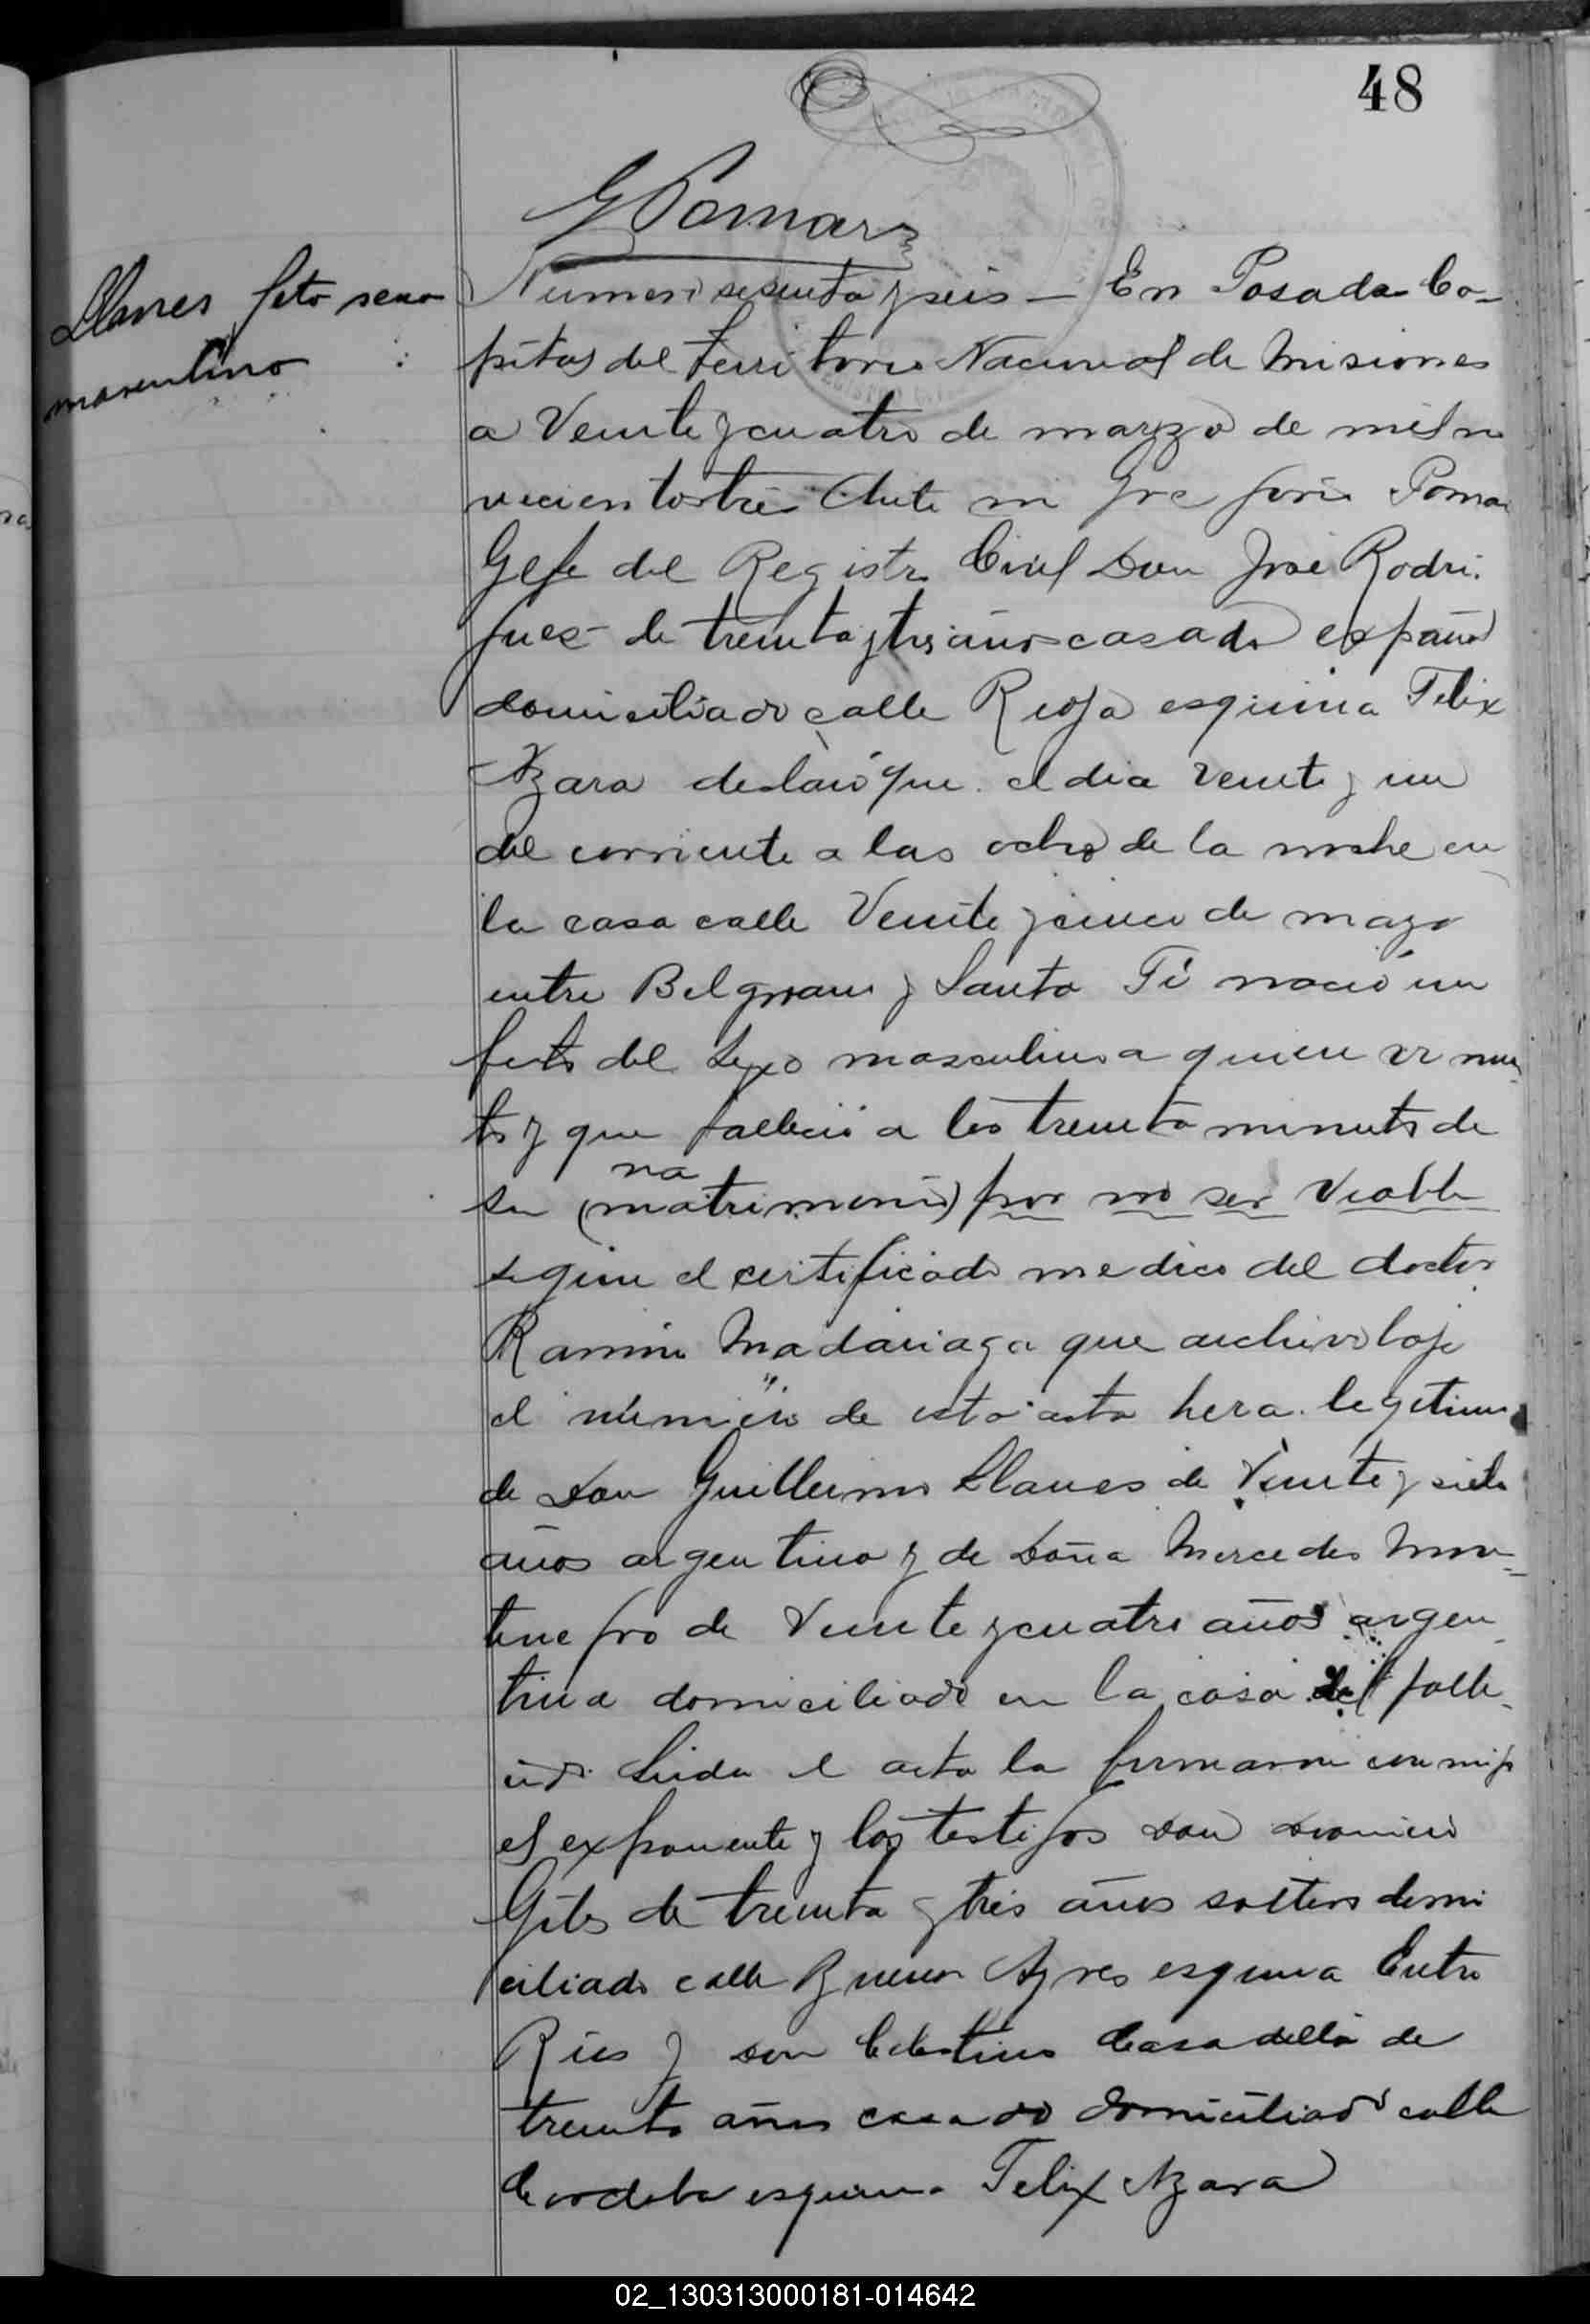 48
G Pomar
Llanes feto sexo
masculino
Numero sesenta y seis — En Posadas Ca-
pital del Territorio Nacional de Misiones
a Veinte y cuatro de marzo de mil no
vecientos tres Ante mi Gregorio Pomar
Gefe del Registro Civil Don José Rodri
guez de treinta y tres años casado español
domiciliado calle Rioja esquina Felix
Azara declaró que el dia veinte y un
del corriente a las ocho de la noche en
la casa calle Veinte y cinco de mayo
entre Belgrano y Santa Fé nació un
feto del sexo masculino a quien vi muer
to y que falleció a los treinta minutos de
na
su (matrimonio) por no ser viable
segun el certificado medico del doctor
Ramón Madariaga que archivo bajo
el número de esta acta hera legitimo
de Don Guillermo Llanes de Veinte y siete
años argentino y de Doña Mercedes Mon-
tenegro de Veinte y cuatro años argen
tina domiciliado en la casa del falle
cido Leida el acta la firmaron conmigo
el exponente y los testigos don Dionicio
Giles de treinta y tres años soltero domi
ciliado calle Buenos Ayres esquina Entre
Rios y don Celestino Casadellá de
treinta años casado domiciliado calle
Cordoba esquina Felix Azara
02_130313000181-014642